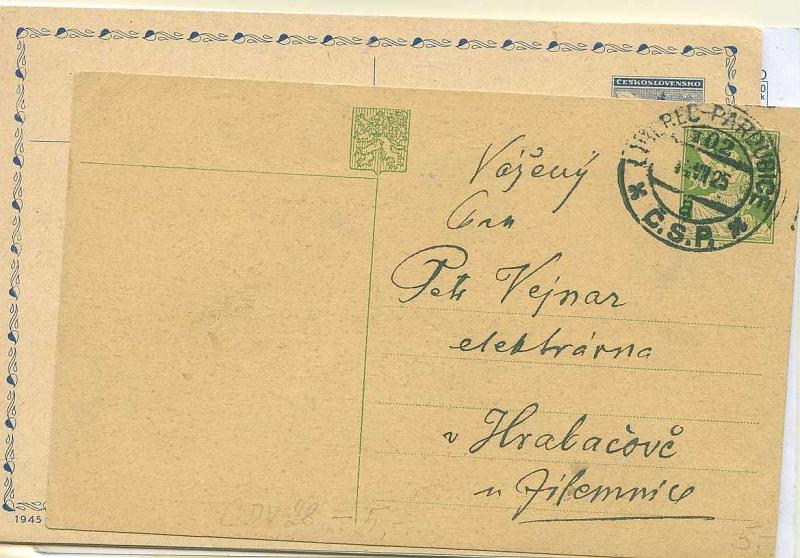 ČESKOSLOVENSKO
LIBEREC-PARDUBICE
102
VII 25
a
* Č.S.P. *
Vážený
Pan
Petr Vejnar
elektrárna
v Hrabačově
u Jilemnice
1945
5,